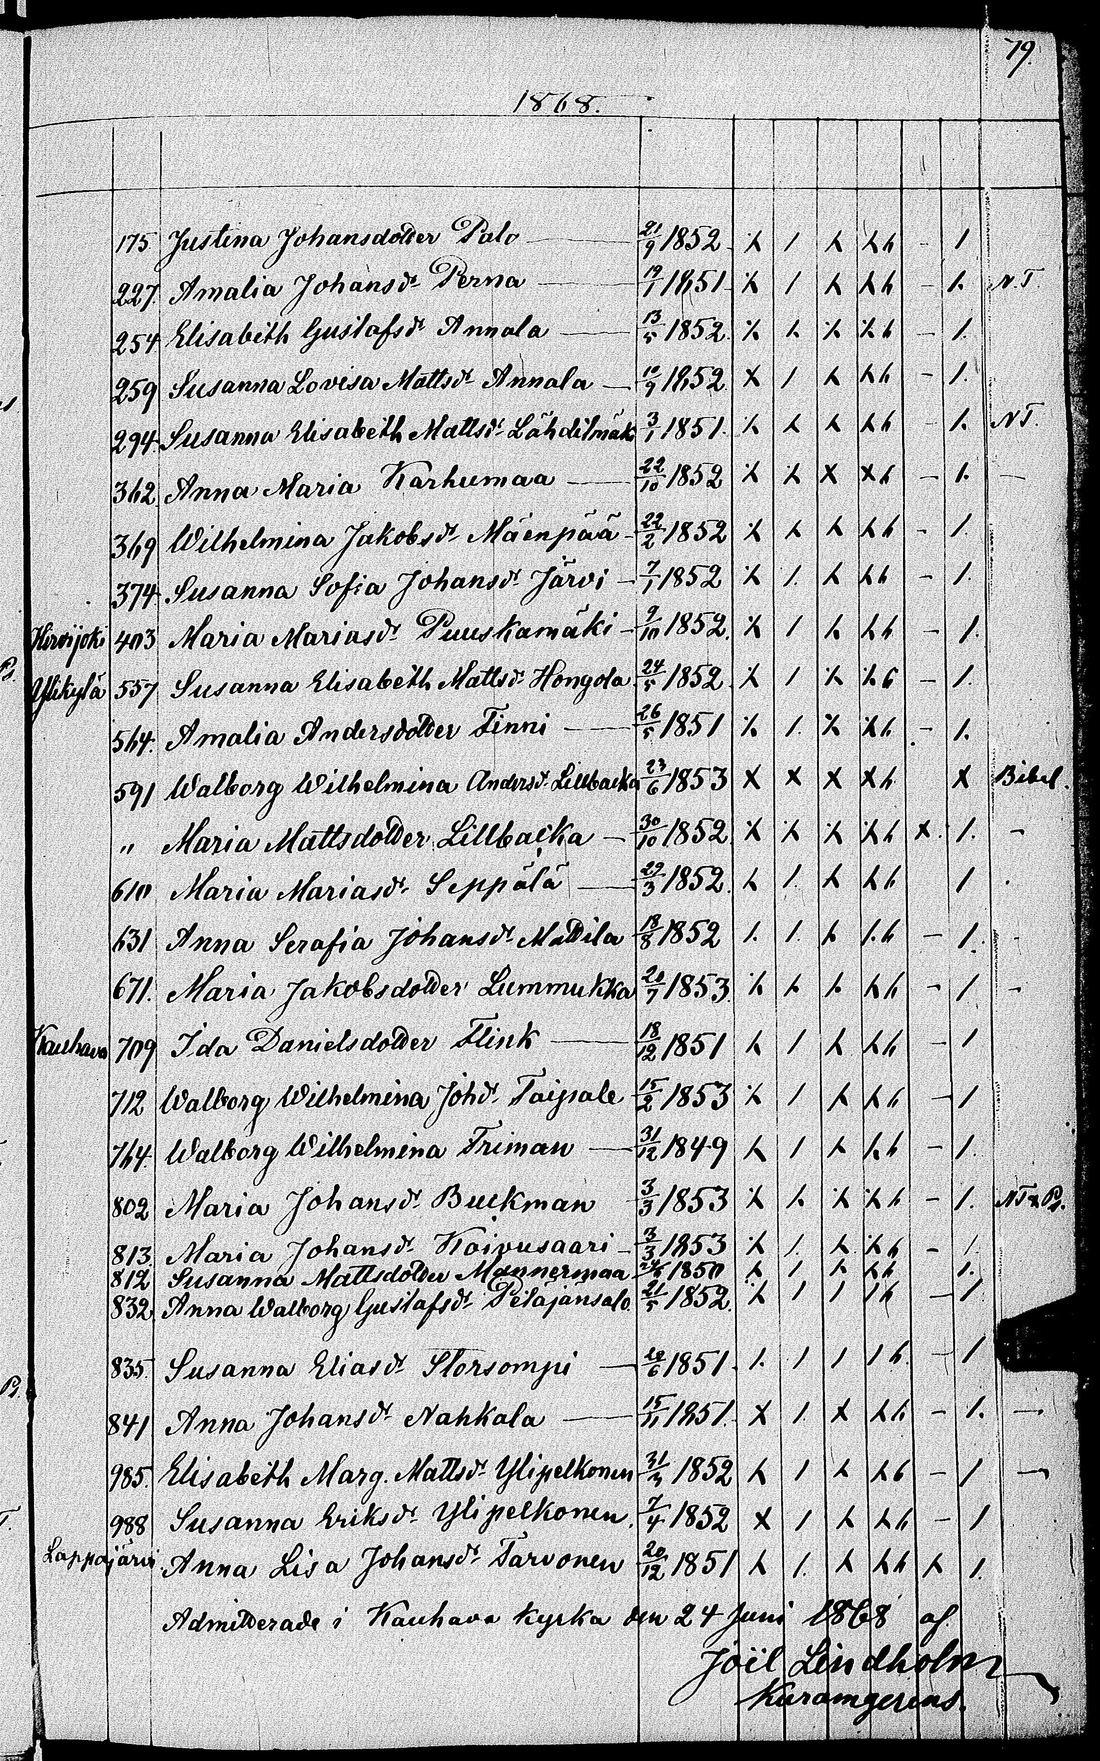 79.
1868.
175 Justina Johansdotter Palo 21/9 1852 - 1
227. Amalia Johansdr Perna 19/1 1851 - N.T.
254 Elisabeth Gustafsdr Annala 13/5 1852 - 1.
259 Susanna Lovisa Mattsdr Annala 10/9 1852 - 1.
294 Susanna Elisabeth Mattsdr Lähdetmäk 3/1 1851 - N.T.
362. Anna Maria Karhumaa 22/10 1852 - 1. -
369 Wilhelmina Jakobsdr Mäenpää 22/2 1852 - 1.
374 Susanna Sofia Johansdr Järvi 7/1 1852 - 1.
Hirvijoki 403 Maria Mariasdr Puuskamäki 9/10 1852. - 1.
Ylikylä 557 Susanna Elisabeth Mattsdr Hongola 24/5 1852 - 1.
564. Amalia Andersdotter Finni 26/5 1851 - 1.
591 Walborg Wilhelmina Andersdr Lillbacka 23/6 1853 x x x x Bibel.
" Maria Mattsdotter Lillbacka 30/10 1852. x. 1. -
610 Maria Mariasdr Seppälä 29/3 1852. 1
631 Anna Serafia Johansdr Mattila 18/8 1852 - 1. -
671. Maria Jakobsdotter Lummukka 20/7 1853. - 1 -
Kauhava 709 Ida Danielsdotter Flink 18/12 1851 - 1
712 Walborg Wilhelmina Johdr Taipale 15/2 1853 - 1
764. Walborg Wilhelmina Friman 31/12 1849 - 1
802 Maria Johansdr Buckman 3/3 1853 - 1. NT & Ps.
813. Maria Johansdr Koivusaari 3/3 1853 - 1.
812 Susanna Mattsdotter Mannermaa 1850 1.
832. Anna Walborg Gustafsdr Petäjänsalo 21/5 1852. - 1
835. Susanna Eliasdr Storsompi 20/6 1851. - 1
841 Anna Johansdr Nahkala 15/11 1851. - 1. -
985. Elisabeth Marg. Mattsdr Ylipelkonen 31/3 1852 - 1 -
988 Susanna Eriksdr Ylipelkonen. 7/4 1852 - 1
Lappajärvi Anna Lisa Johansdr Tarvonen 20/12 1851 1.
Admitterade i Kauhava kyrka den 24 Juni 1868 af
Joël Lindholm